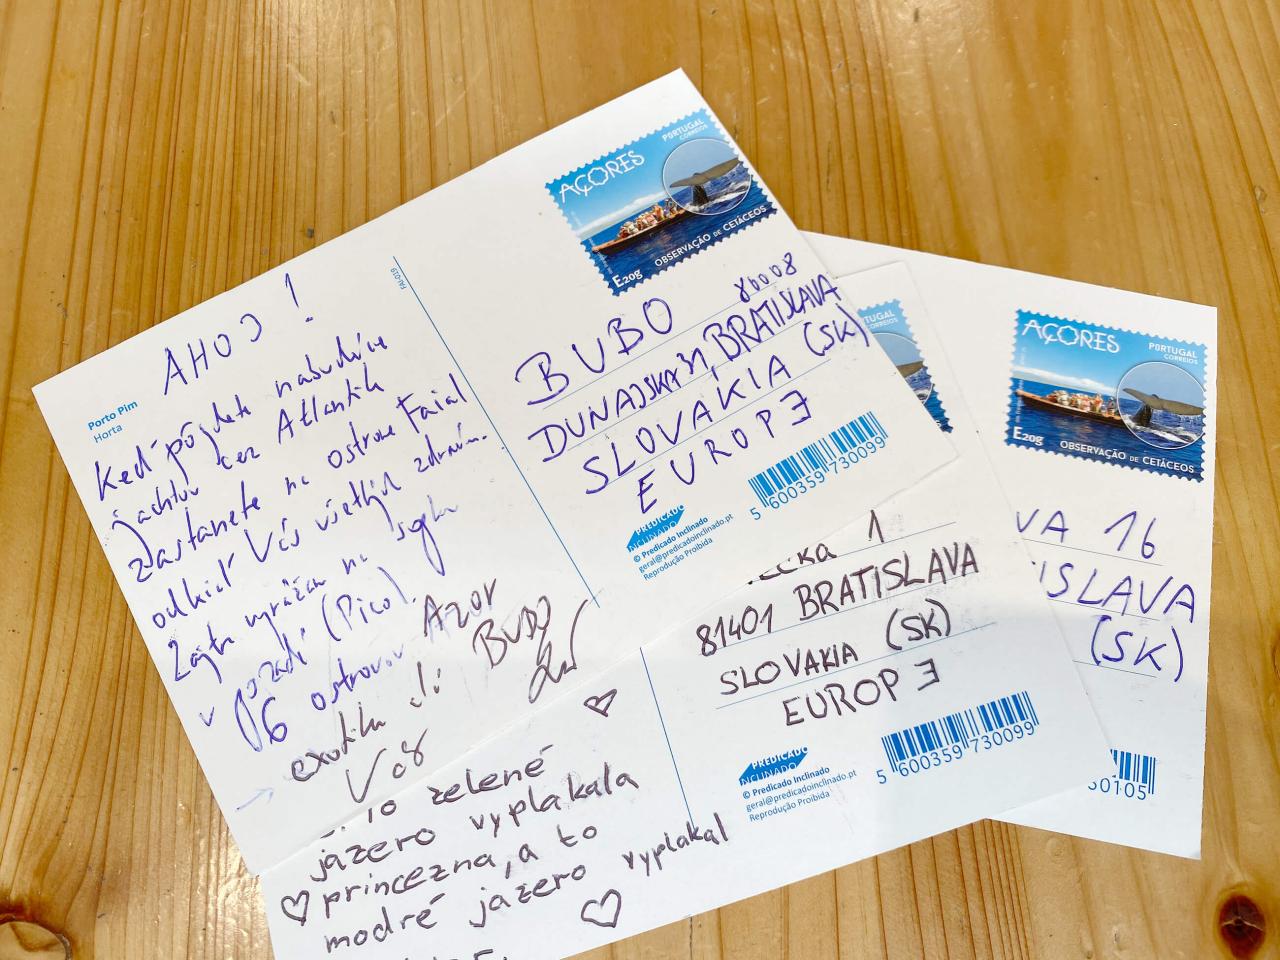 AÇORES
PORTUGAL
CORREIOS
E20g OBSERVAÇÃO DE CETÁCEOS
FAI-019
Porto Pim
Horta
AHOJ !
Keď pôjdete nabudúce
jachtou cez Atlantik
zastanete na ostrove Faial
odkiaľ Vás všetkých zdravím.
Zajtra vyrážam na
v pozadí (Pico).
ostrovov AZOR
exotika
BUBO
Vás
BUBO
DUNAJSKÁ 31, BRATISLAVA
SLOVAKIA (SK)
EUROPE
PREDICADO
INCLINADO
© Predicado Inclinado
geral@predicadoinclinado.pt
Reprodução Proibida
5 600359 730099
TUGAL
REIOS
1
81401 BRATISLAVA
SLOVAKIA (SK)
EUROPE
PREDICADO
INCLINADO
© Predicado Inclinado
geral@predicadoinclinado.pt
Reprodução Proibida
5 600359 730099
to zelené
jazero vyplakala
princezna, a to
modré jazero vyplakal
AÇORES
PORTUGAL
CORREIOS
E20g OBSERVAÇÃO DE CETÁCEOS
VA 16
ISLAVA
(SK)
50105